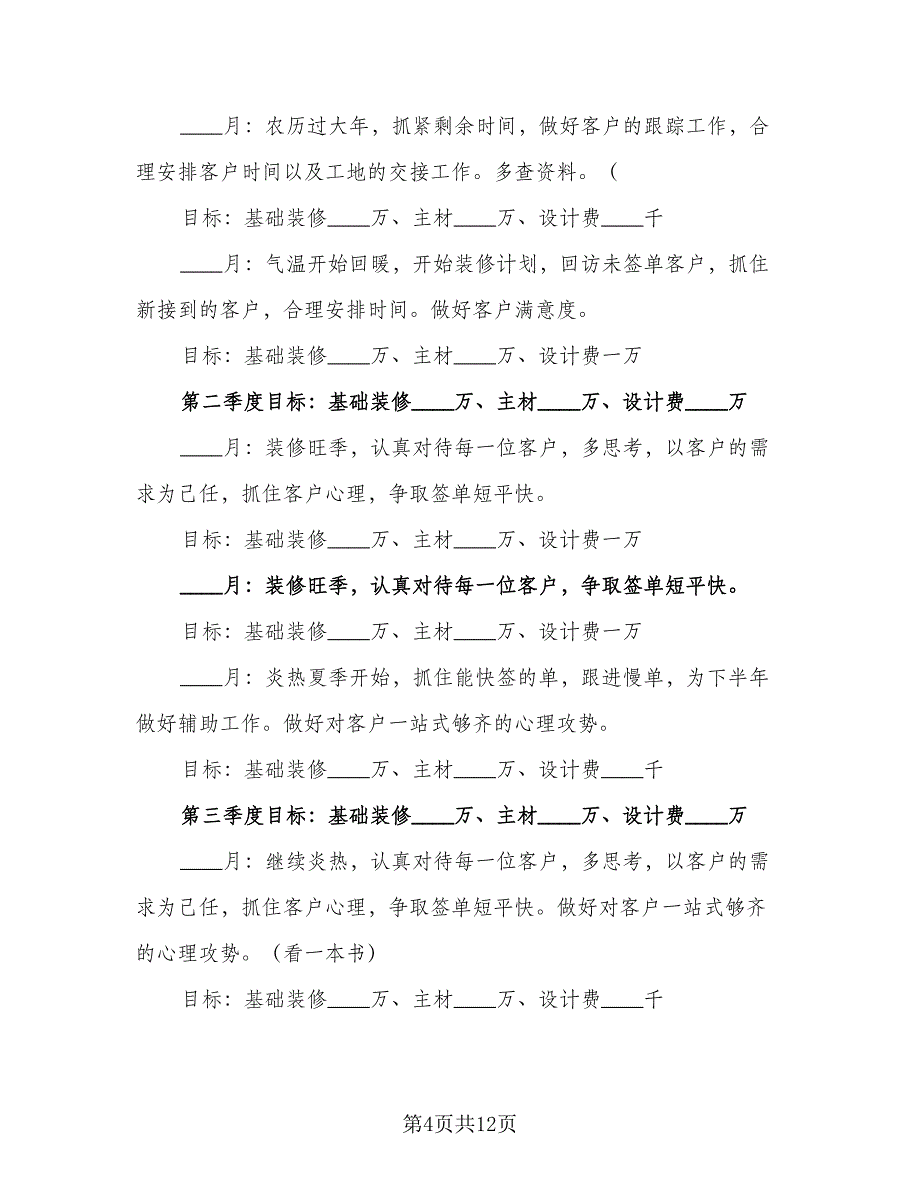 ____月：农历过大年，抓紧剩余时间，做好客户的跟踪工作，合
理安排客户时间以及工地的交接工作。多查资料。（
目标：基础装修____万、主材____万、设计费____千
____月：气温开始回暖，开始装修计划，回访未签单客户，抓住
新接到的客户，合理安排时间。做好客户满意度。
目标：基础装修____万、主材____万、设计费一万
第二季度目标：基础装修____万、主材____万、设计费____万
____月：装修旺季，认真对待每一位客户，多思考，以客户的需
求为己任，抓住客户心理，争取签单短平快。
目标：基础装修____万、主材____万、设计费一万
____月：装修旺季，认真对待每一位客户，争取签单短平快。
目标：基础装修____万、主材____万、设计费一万
____月：炎热夏季开始，抓住能快签的单，跟进慢单，为下半年
做好辅助工作。做好对客户一站式够齐的心理攻势。
目标：基础装修____万、主材____万、设计费____千
第三季度目标：基础装修____万、主材____万、设计费____万
____月：继续炎热，认真对待每一位客户，多思考，以客户的需
求为己任，抓住客户心理，争取签单短平快。做好对客户一站式够齐
的心理攻势。（看一本书）
目标：基础装修____万、主材____万、设计费____千
第4页共12页